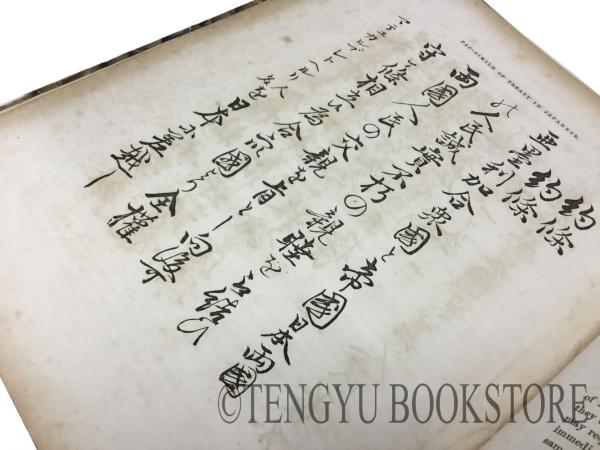 FAC-SIMILE OF TREATY IN JAPANESE.
約條
約條
亜墨利加合衆國と帝國日本両國
の人民誠實不朽の親睦を取結ひ
両國人民の交親を旨とし向後可
守ヶ條相立候為合衆國より全權
マテュカルブレトヘルリ人名を日本に差越し
of
they
may
immedi
©TENGYU BOOKSTORE